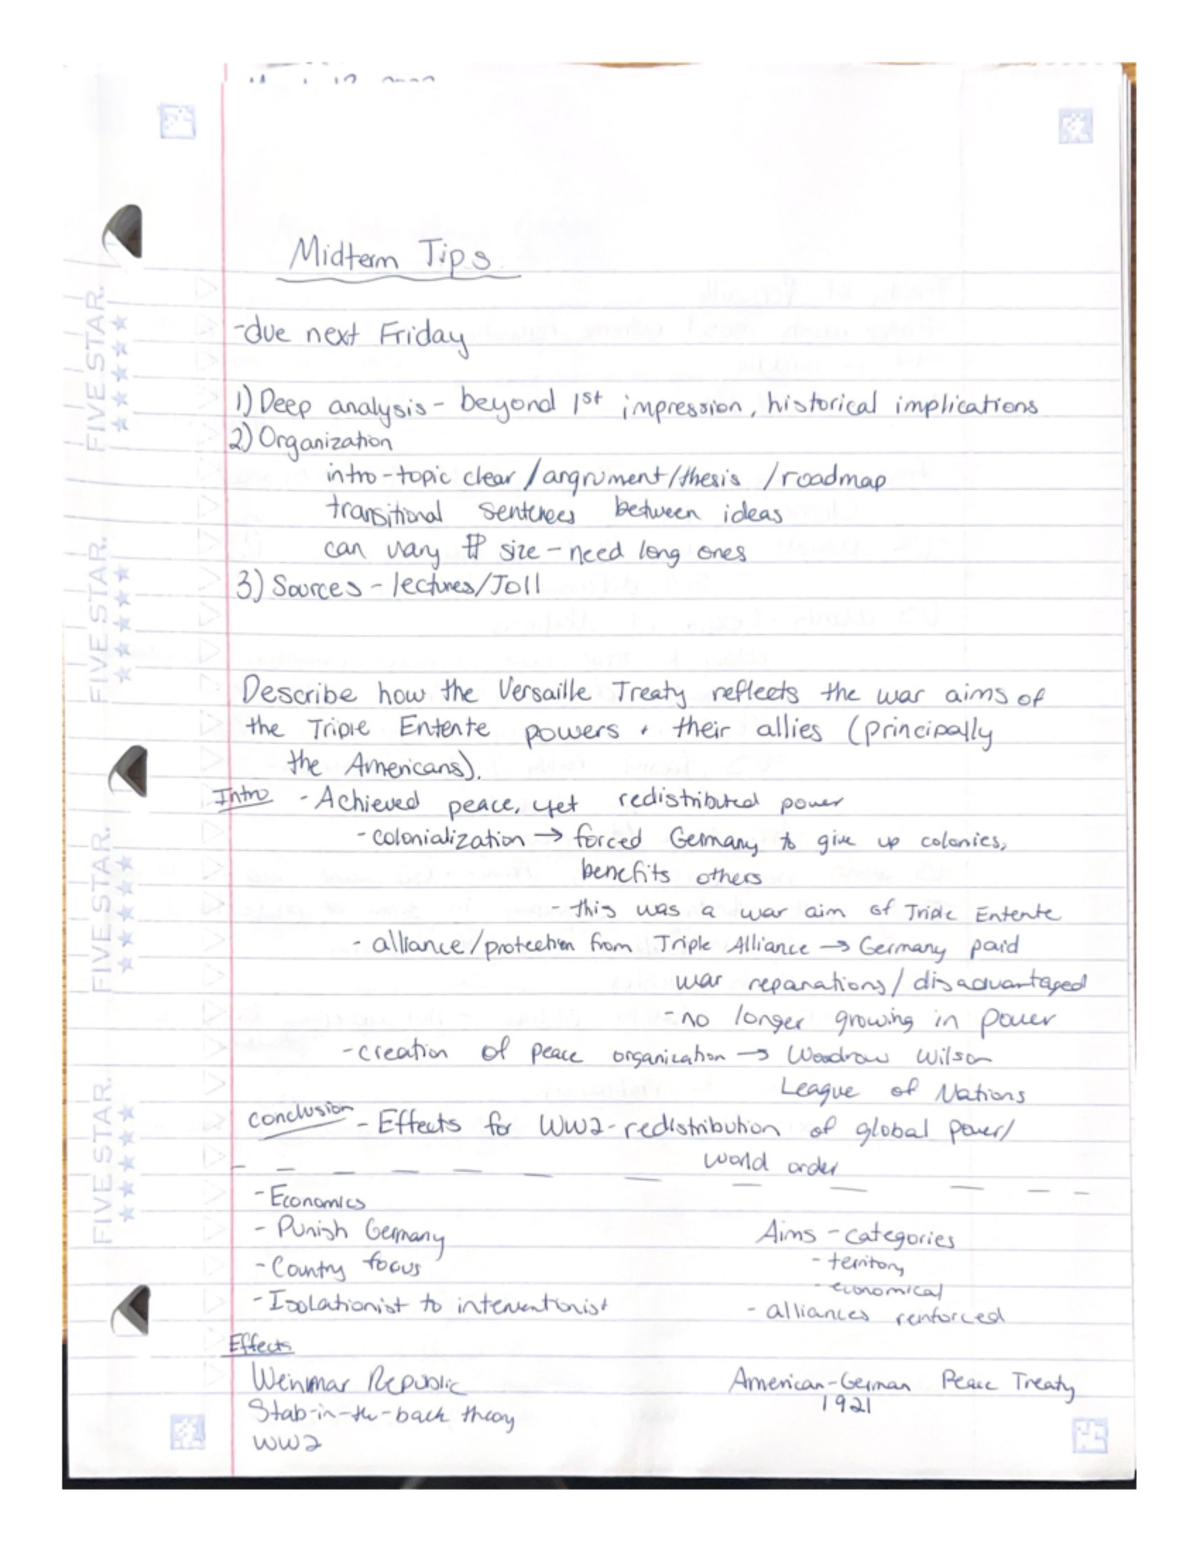 Midterm Tips
-due next Friday
1) Deep analysis - beyond 1st impression, historical implications
2) Organization
intro-topic clear / angrument/thesis / roadmap
transitional sentences between ideas
can vary ¶ size - need long ones
3) Sources - lectures/Joll
Describe how the Versaille Treaty reflects the war aims of
the Triple Entente powers + their allies (principally
the Americans).
Intro - Achieved peace, yet redistributed power
- colonialization → forced Germany to give up colonies,
benefits others
- this was a war aim of Triple Entente
- alliance/protection from Triple Alliance → Germany paid
war reparations/disadvantaged
- no longer growing in power
- creation of peace organization → Woodrow Wilson
League of Nations
Conclusion - Effects for WW2 - redistribution of global power/
world order
- Economics
- Punish Germany
- Country focus
- Isolationist to interventionist
Aims - categories
- territory
- economical
- alliances renforced
Effects
Weinmar Republic
Stab-in-the-back theory
WW2
American-German Peace Treaty
1921
FIVE STAR.
FIVE STAR.
FIVE STAR.
FIVE STAR.